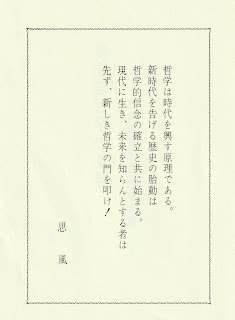 哲学は時代を興す原理である。
新時代を告げる歴史の胎動は
哲学的信念の確立と共に始まる。
現代に生き、未来を知らんとする者は
先ず、新しき哲学の門を叩け！
思風